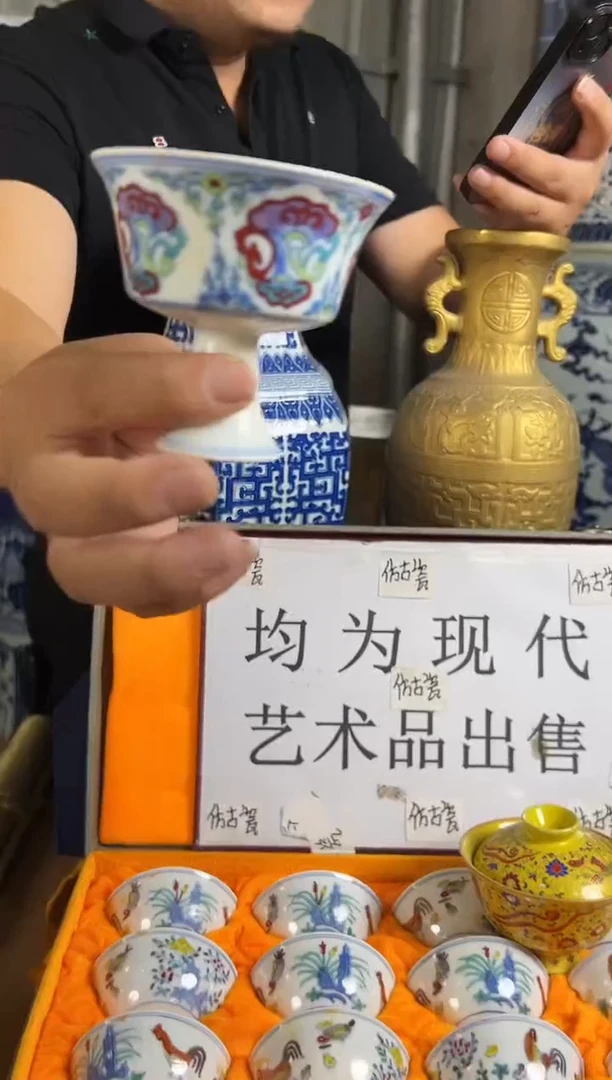 瓷
仿古瓷
仿古瓷
均为现代
仿古瓷
艺术品出售
仿古瓷
仿古瓷